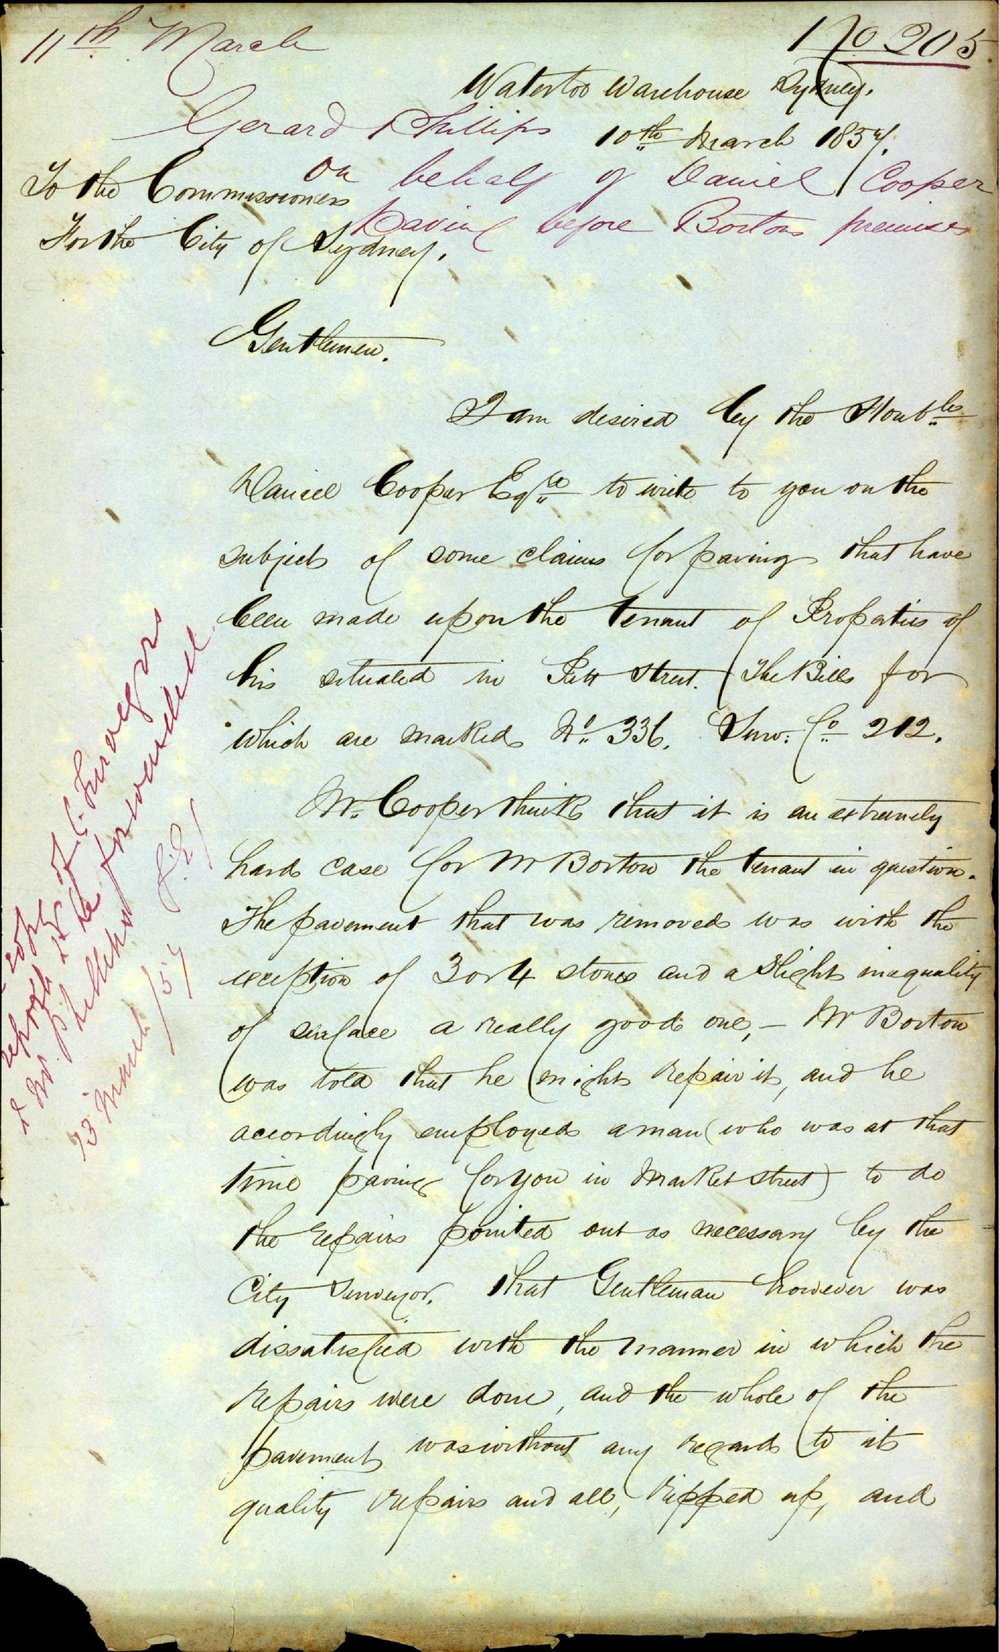 11th March
No 205.
Waterloo Warehouse Sydney.
10th March 1857.
Gerard Phillips
on behalf of Daniel Cooper
Paving before Bortons premises
To the Commissioners
For the City of Sydney.
Gentlemen.
I am desired by the Honble
Daniel Cooper Esqre to write to you on the
subject of some claims for paving that have
been made upon the tenant of Properties of
his situated in Pitt Street. The Bills for
which are marked No. 336. Fo. 212.
Mr. Cooper thinks that it is an extremely
hard case for Mr Borton the tenant in question.
The pavement that was removed was with the
exception of 3 or 4 stones and a slight inequality
of surface a really good one, – Mr Borton
was told that he might repair it, and he
accordingly employed a man (who was at that
time paving for you in Market Street) to do
the repairs pointed out as necessary by the
City Surveyor. that Gentleman however was
dissatisfied with the manner in which the
repairs were done, and the whole of the
pavement was without any regard to its
quality repairs and all, ripped up, and
copy of C. Surveyors
report to be forwarded
to Mr Phillips
23 March /57